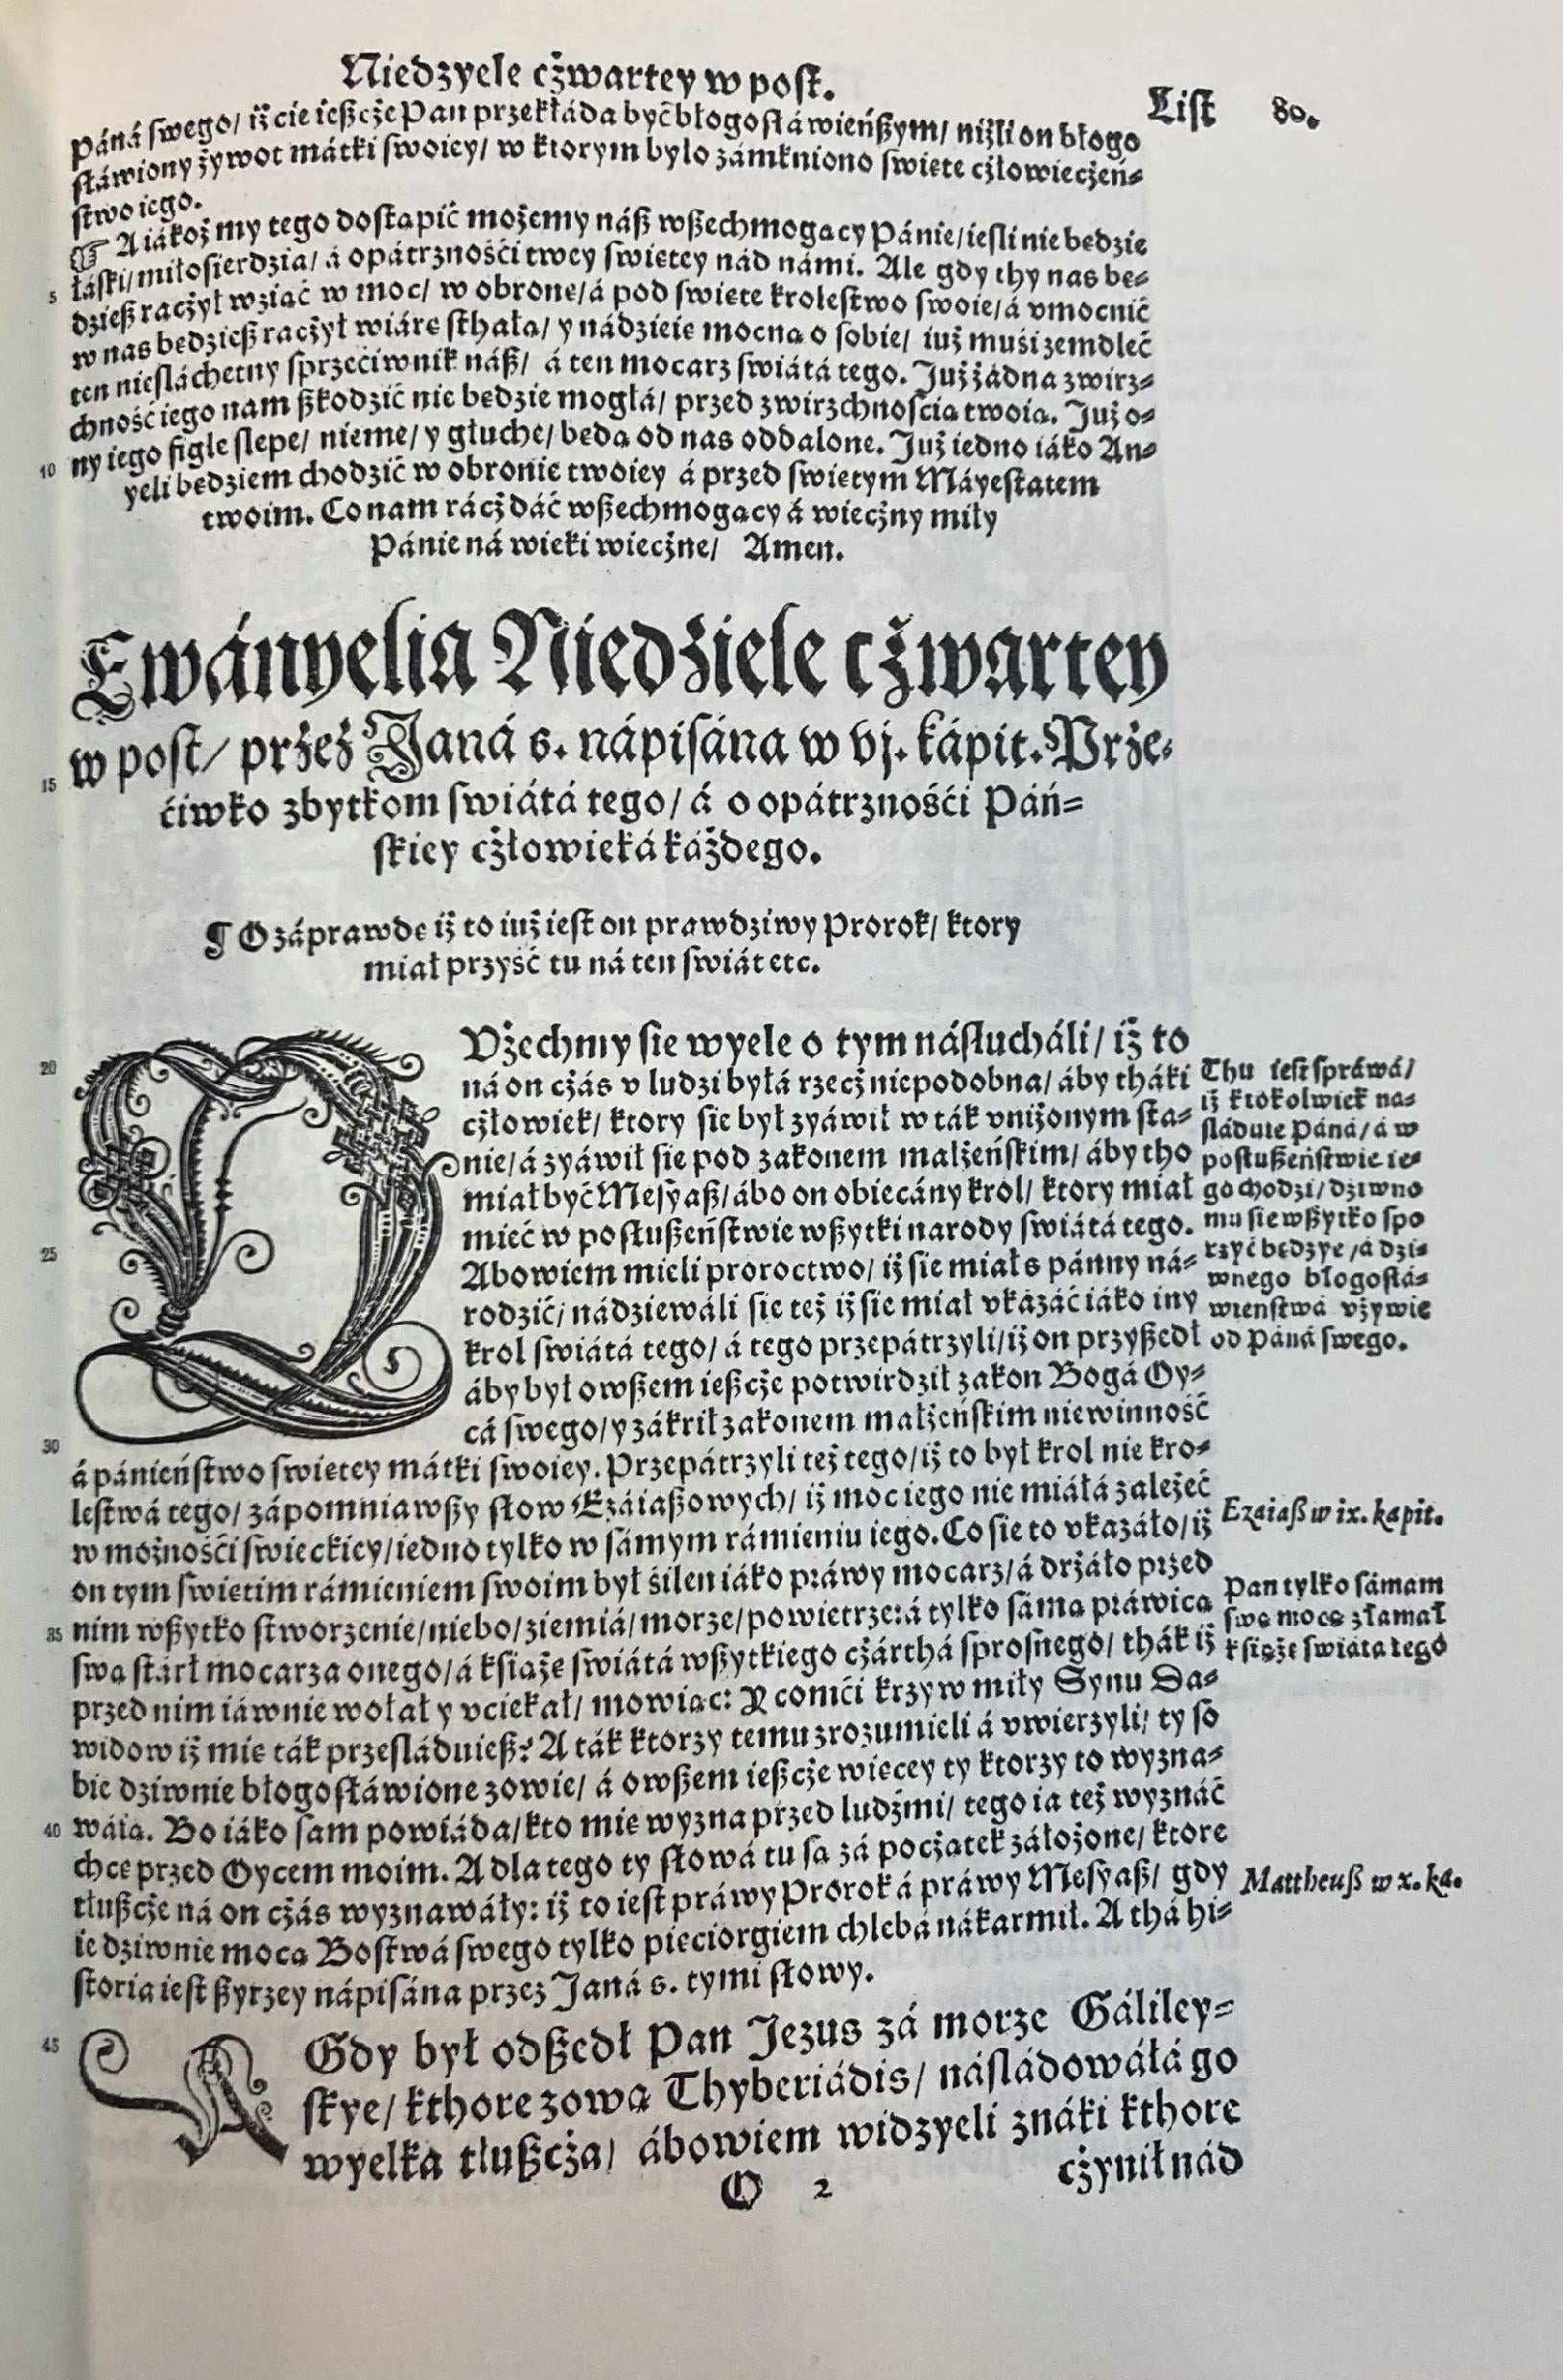 Niedzyele cżwartey w post.
List 80.
Páná swego/ iż cie ießcże Pan przekłáda być błogosłáwieńßym/ niżli on błogo
słáwiony żywot mátki swoiey/ w ktorym było zámkniono swięte cżłowiecżeń⸗
stwo iego.
☞ A iákoż my tego dostąpić możemy náß wßechmogący Pánie/ iesli nie będzie
5 łáski/ miłosierdzia/ á opátrznośći twey swiętey nád námi. Ale gdy thy nas bę⸗
dzieß racżył wziąć w moc/ w obronę/ á pod swięte krolestwo swoie/ á vmocnić
w nas będzieß racżył wiárę sthałą/ y nádzieię mocną o sobie/ iuż muśi zemdleć
ten niesláchetny sprzećiwnik náß/ á ten mocarz swiátá tego. Już żadna zwirz⸗
chność iego nam ßkodzić nie będzie mogłá/ przed zwirzchnością twoią. Już o⸗
10 ny iego figle slepe/ nieme/ y głuche/ będą od nas oddalone. Już iedno iáko An⸗
yeli będziem chodzić w obronie twoiey á przed swiętym Máyestatem
twoim. Co nam rácż dáć wßechmogący á wiecżny miły
Pánie ná wieki wiecżne/ Amen.
Ewányelia Niedziele cżwartey
15 w post/ przez Janá s. nápisána w vj. kápit. Prze⸗
ćiwko zbytkom swiátá tego/ á o opátrznośći Páń⸗
skiey cżłowieká káżdego.
¶ O záprawdę iż to iuż iest on prawdziwy Prorok/ ktory
miał przyść tu ná ten swiát etc.
20 VżechmY się wyele o tym násłucháli/ iż to
ná on cżás v ludzi byłá rzecż niepodobna/ áby tháki
cżłowiek/ ktory się był zyáwił w ták vniżonym sta⸗
nie/ á zyáwił się pod zakonem małżeńskim/ áby tho
miał być Mesyaß/ ábo on obiecány krol/ ktory miał
mieć w posłußeństwie wßytki narody swiátá tego.
25 Abowiem mieli proroctwo/ iż się miał s pánny ná⸗
rodzić/ nádziewáli się też iż się miał vkázáć iáko iny
krol swiátá tego/ á tego przepátrzyli/ iż on przyßedł
áby był owßem ießcże potwirdził zakon Bogá Oy⸗
cá swego/ y zákrił zakonem małżeńskim niewinność
30 á pánieństwo swiętey mátki swoiey. Przepátrzyli też tego/ iż to był krol nie kro⸗
lestwá tego/ zápomniawßy słow Ezáiaßowych/ iż moc iego nie miáłá zależeć
w możnośći swieckiey/ iedno tylko w sámym rámieniu iego. Co się to vkazáło/ iż
on tym swiętim rámieniem swoim był śilen iáko práwy mocarz/ á drżáło przed
35 nim wßytko stworzenie/ niebo/ ziemiá/ morze/ powietrze: á tylko sáma práwicą
swą stárł mocarza onego/ á książe swiátá wßytkiego cżárthá sprosnego/ thák iż
przed nim iáwnie wołał y vciekał/ mowiąc: Y comći krzyw miły Synu Da⸗
widow iż mię ták przesláduieß? A ták ktorzy temu zrozumieli á vwierzyli/ ty so
bie dziwnie błogosłáwione zowie/ á owßem ießcże więcey ty ktorzy to wyzna⸗
40 wáią. Bo iáko sam powiáda/ kto mię wyzna przed ludźmi/ tego ia też wyznáć
chcę przed Oycem moim. A dla tego ty słowá tu są zá pocżątek záłożone/ ktore
tłußcże ná on cżás wyznawáły: iż to iest práwy Prorok á práwy Mesyaß/ gdy
ie dziwnie mocą Bostwá swego tylko pięciorgiem chlebá nákarmił. A thá hi⸗
storia iest ßyrzey nápisána przez Janá s. tymi słowy.
45 A Gdy był odßedł Pan Jezus zá morze Gáliley⸗
skye/ kthore zową Thyberiádis/ násládowáłá go
wyelka tłußcża/ ábowiem widzyeli znáki kthore
O 2 cżynił nád
Thu iest spráwá/
iż ktokolwiek na⸗
sláduie Páná/ á w
posłußeństwie ie⸗
go chodzi/ dziwno
mu się wßytko spo
rzyć będzye/ á dzi⸗
wnego błogosłá⸗
wieństwá vżywie
od Páná swego.
Ezaiaß w ix. kapit.
Pan tylko sám am
swą mocą złamał
książę swiátá tego
Mattheuß w x. ka.